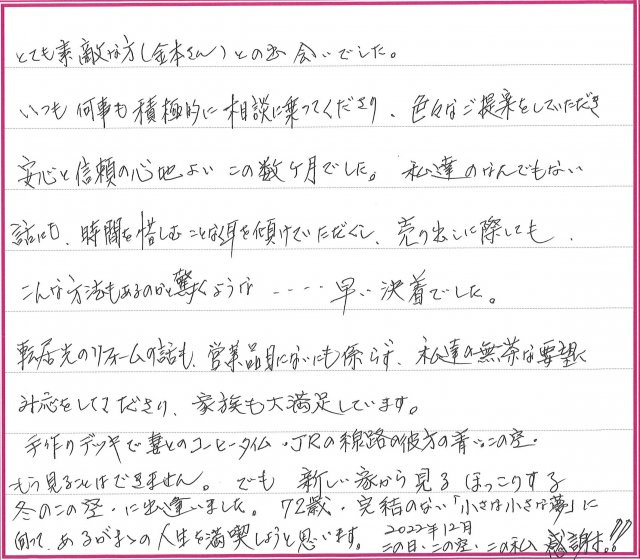 とても素敵な方(金本さん)との出会いでした。
いつも何事も積極的に相談に乗ってくださり、色々なご提案をしていただき
安心と信頼の心地よいこの数ケ月でした。私達のなんでもない
話にも、時間を惜しむことなく耳を傾けていただくし、売り出しに際しても、
こんな方法もあるのかと驚くような‥‥‥早い決着でした。
転居先のリフォームの話も、営業品目にないにも係らず、私達の無茶な要望に
対応をして下ださり、家族も大満足しています。
手作りデッキで妻とのコーヒータイム・JRの線路の彼方の青いこの空・
もう見ることはできません。でも新しい家から見るほっこりする
冬のこの空・に出逢いました。72歳・完結のない「小さな小さな夢」に
向って、あるがままの人生を満喫しようと思います。
2022年12月
この日・この空・この私 感謝す!!